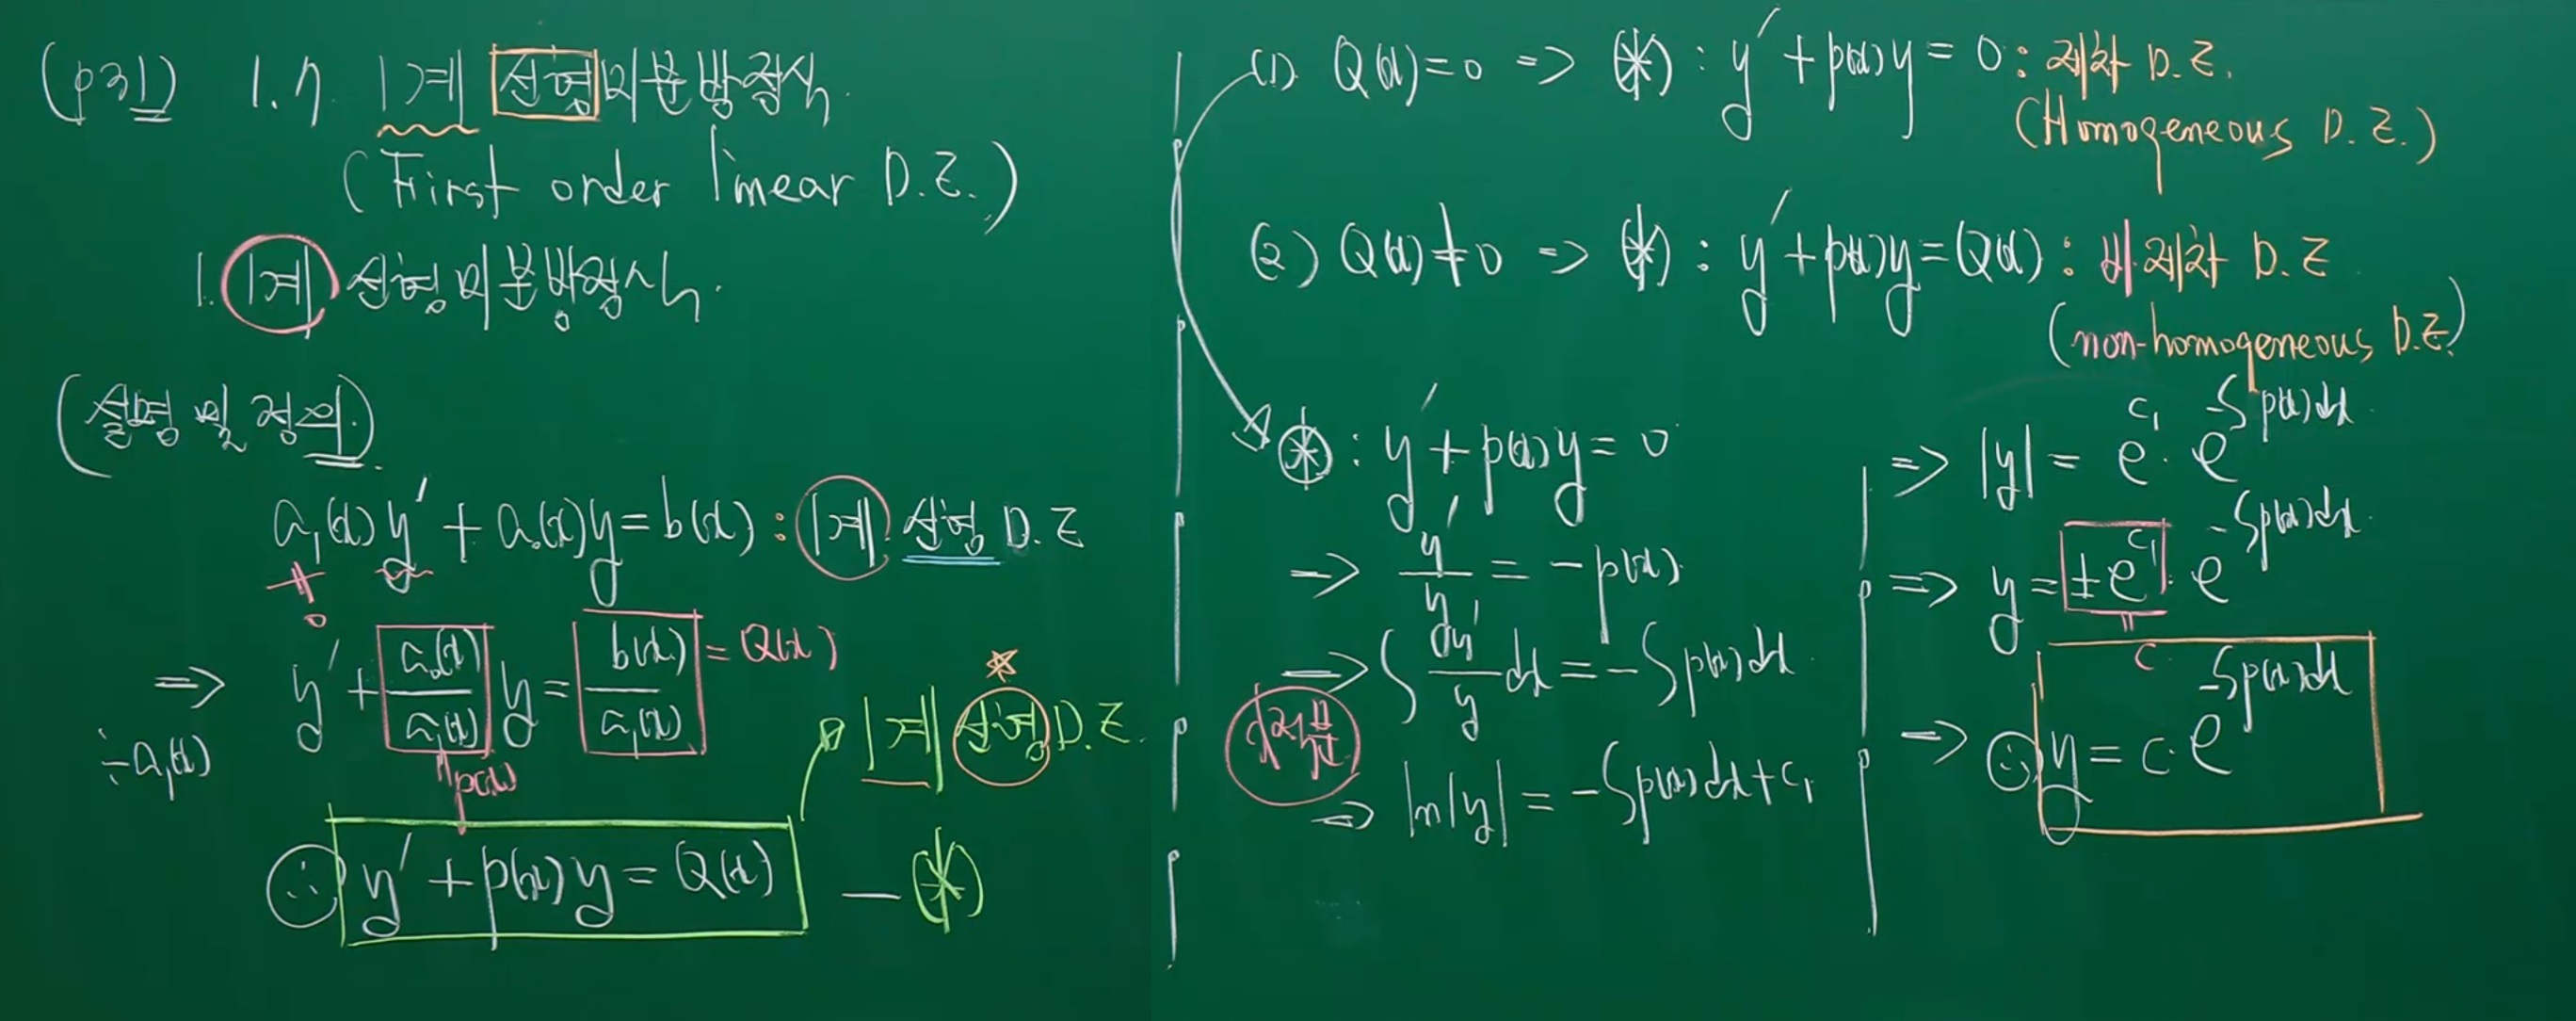 (p31) 1.7. 1계 선형미분방정식.
(First order linear D.E.)
1. 1계 선형미분방정식.
(설명 및 정의.)
a₁(x)y′ + a₀(x)y = b(x) : 1계 선형 D.E
≠ 0
⇒ y′ + a₀(x)/a₁(x) y = b(x)/a₁(x) = Q(x)
÷a₁(x)
" p(x)
1계 선형 D.E.
∴ y′ + p(x)y = Q(x) — (*)
(1) Q(x)=0 => (*) : y′ + p(x)y = 0 : 제차 D.E.
(Homogeneous D.E.)
(2) Q(x)≠0 => (*) : y′ + p(x)y = Q(x) : 비제차 D.E
(non-homogeneous D.E.)
(*) : y′ + p(x)y = 0
=> y′/y = -p(x)
=> ∫ y′/y dx = -∫p(x)dx
=> ln|y| = -∫p(x)dx + c₁
=> |y| = e^c₁ · e^-∫p(x)dx
=> y = ±e^c₁ · e^-∫p(x)dx
" c
=> ∴ y = c·e^-∫p(x)dx